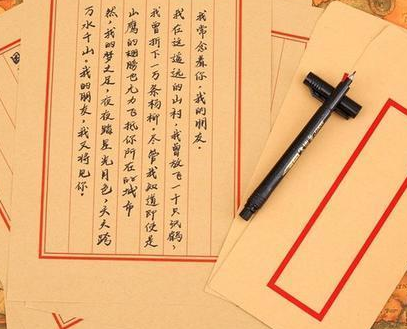 我常念着你,我的朋友。
我在这遥远的山村,我曾放飞一千只纸鹤,
我曾折下一万条杨柳。尽管我知道即使是
山鹰的翅膀也无力飞抵你所在的城市
然,我的梦之足,夜夜踏星光月色,天天跨
万水千山,我的朋友,我又将见你.